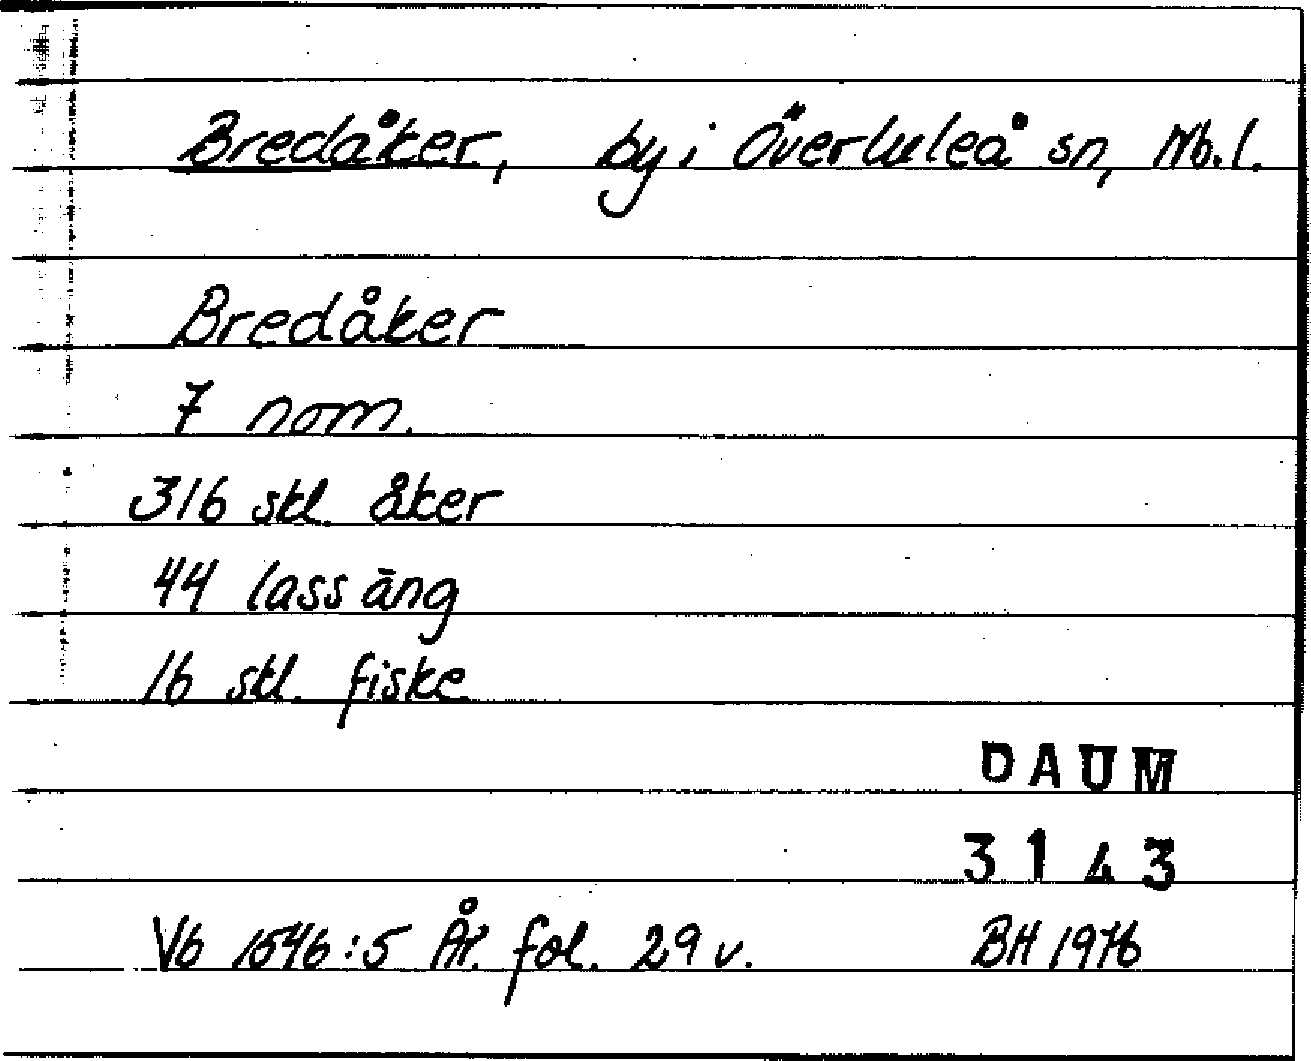 Bredåker, by i Överluleå sn, Nb.l.
Bredåker
7 nom.
316 skl. åker
44 lass äng
16 skl. fiske
DAUM
3143
Vb 1546:5 Ål. fol. 29 v. BH 1976